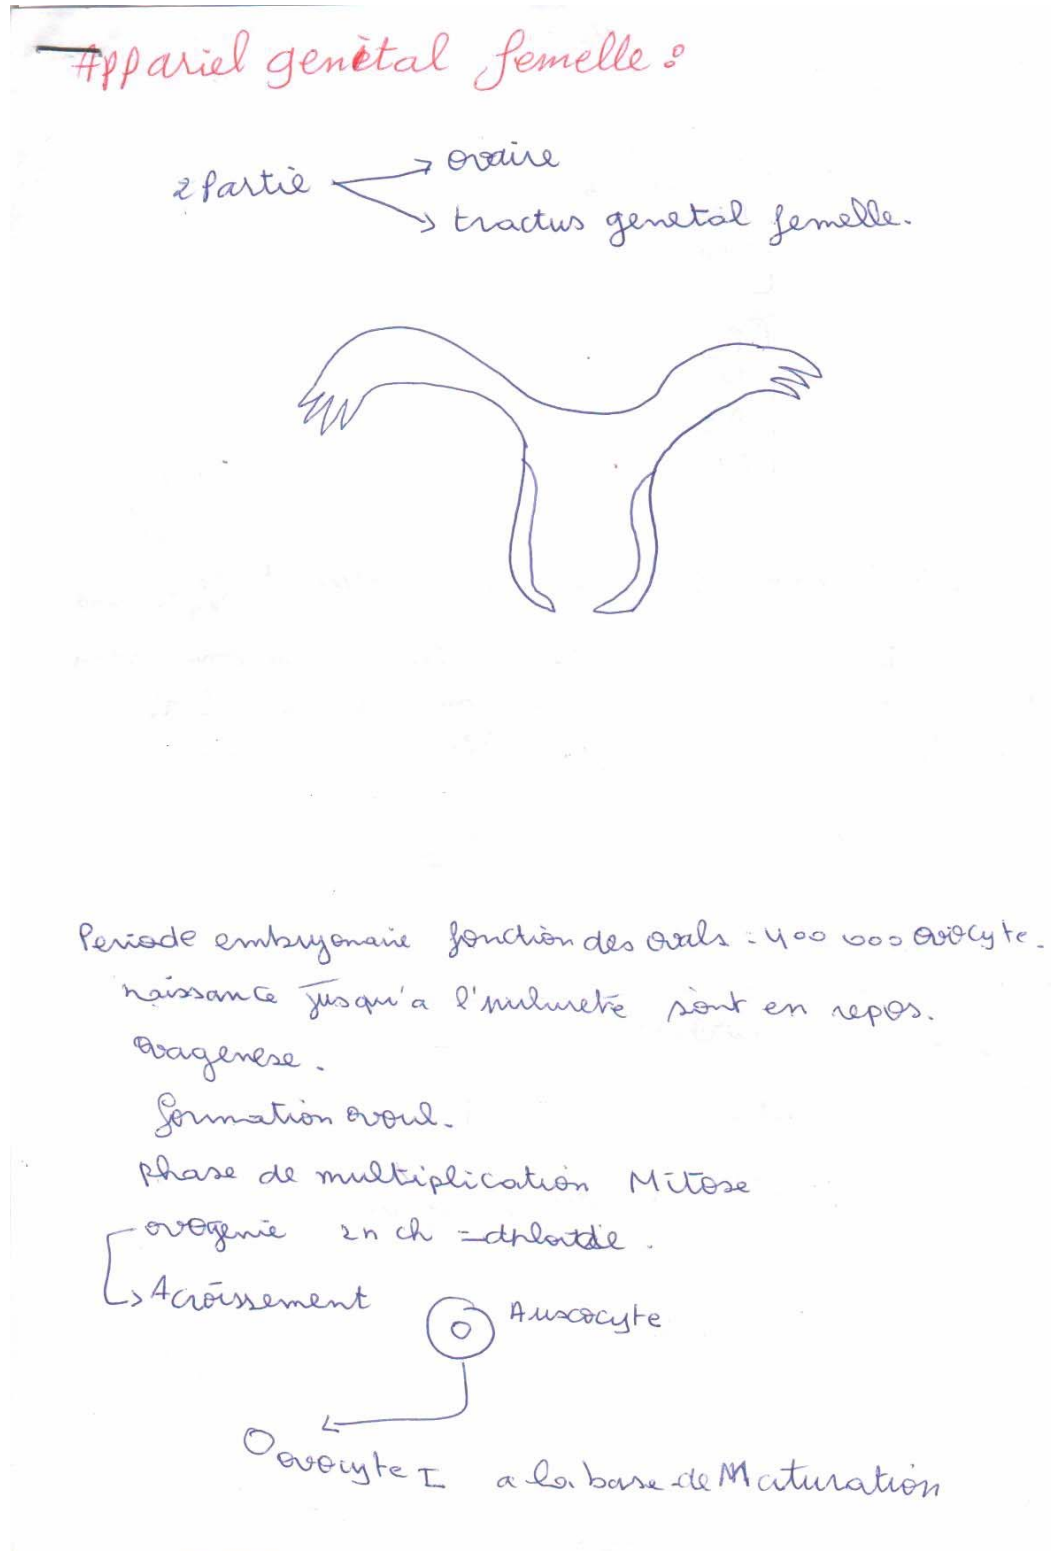 Appariel genètal femelle :
2 Partie → ovaire
→ tractus genetal femelle.
Periode embryonaire fonction des ovals : 400 000 ovocyte.
naissance jusqu'a l' sont en repos.
ovagenese.
formation ovoul.
phase de multiplication Mitose
ovogenie 2n ch =
Acroissement
Auxocyte
ovocyte I a la base de Maturation